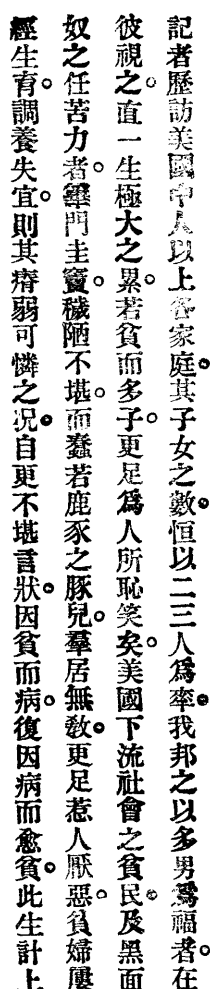 記者歷訪美國中人以上各家庭。其子女之數。恒以二三人爲率。我邦之以多男爲福者。在
彼視之。直一生極大之累。若貧而多子。更足爲人所恥笑矣。美國下流社會之貧民。及黑面
奴之任苦力者。篳門圭竇。穢陋不堪。而蠢若鹿豕之豚兒。羣居無敎。更足惹人厭惡。貧婦屢
經生育。調養失宜。則其瘠弱可憐之况。自更不堪言狀。因貧而病。復因病而愈貧。此生計上